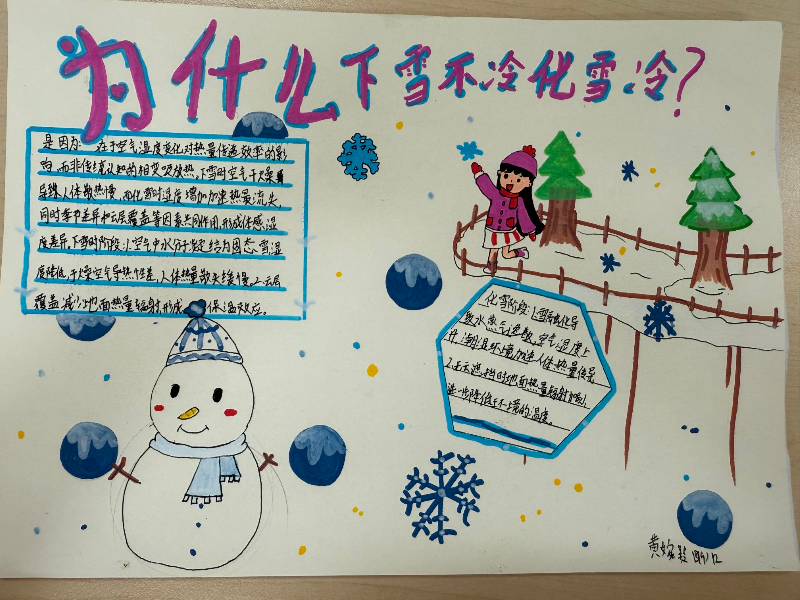 为什么下雪不冷化雪冷?
是因为: 在于空气湿度变化对热量传递效率的影
响,而非传统认知的相变吸放热,下雪时空气干燥
导致人体散热慢,而化雪时湿度增加加速热量流失,
同时季节差异和云层覆盖等因素共同作用,形成体感温
度差异,下雪时阶段:1.空气中水分子凝结为固态雪,湿
度降低,干燥空气导热性差,人体热量散失缓慢。2.云层
覆盖减少地面热量辐射形成 保温效应。
化雪阶段:1.雪融化导
致水蒸气进散,空气湿度上
升,潮湿环境加速人体热量传导
2.无云遮挡时地面热量辐射加剧,
进一步降低了环境的温度。